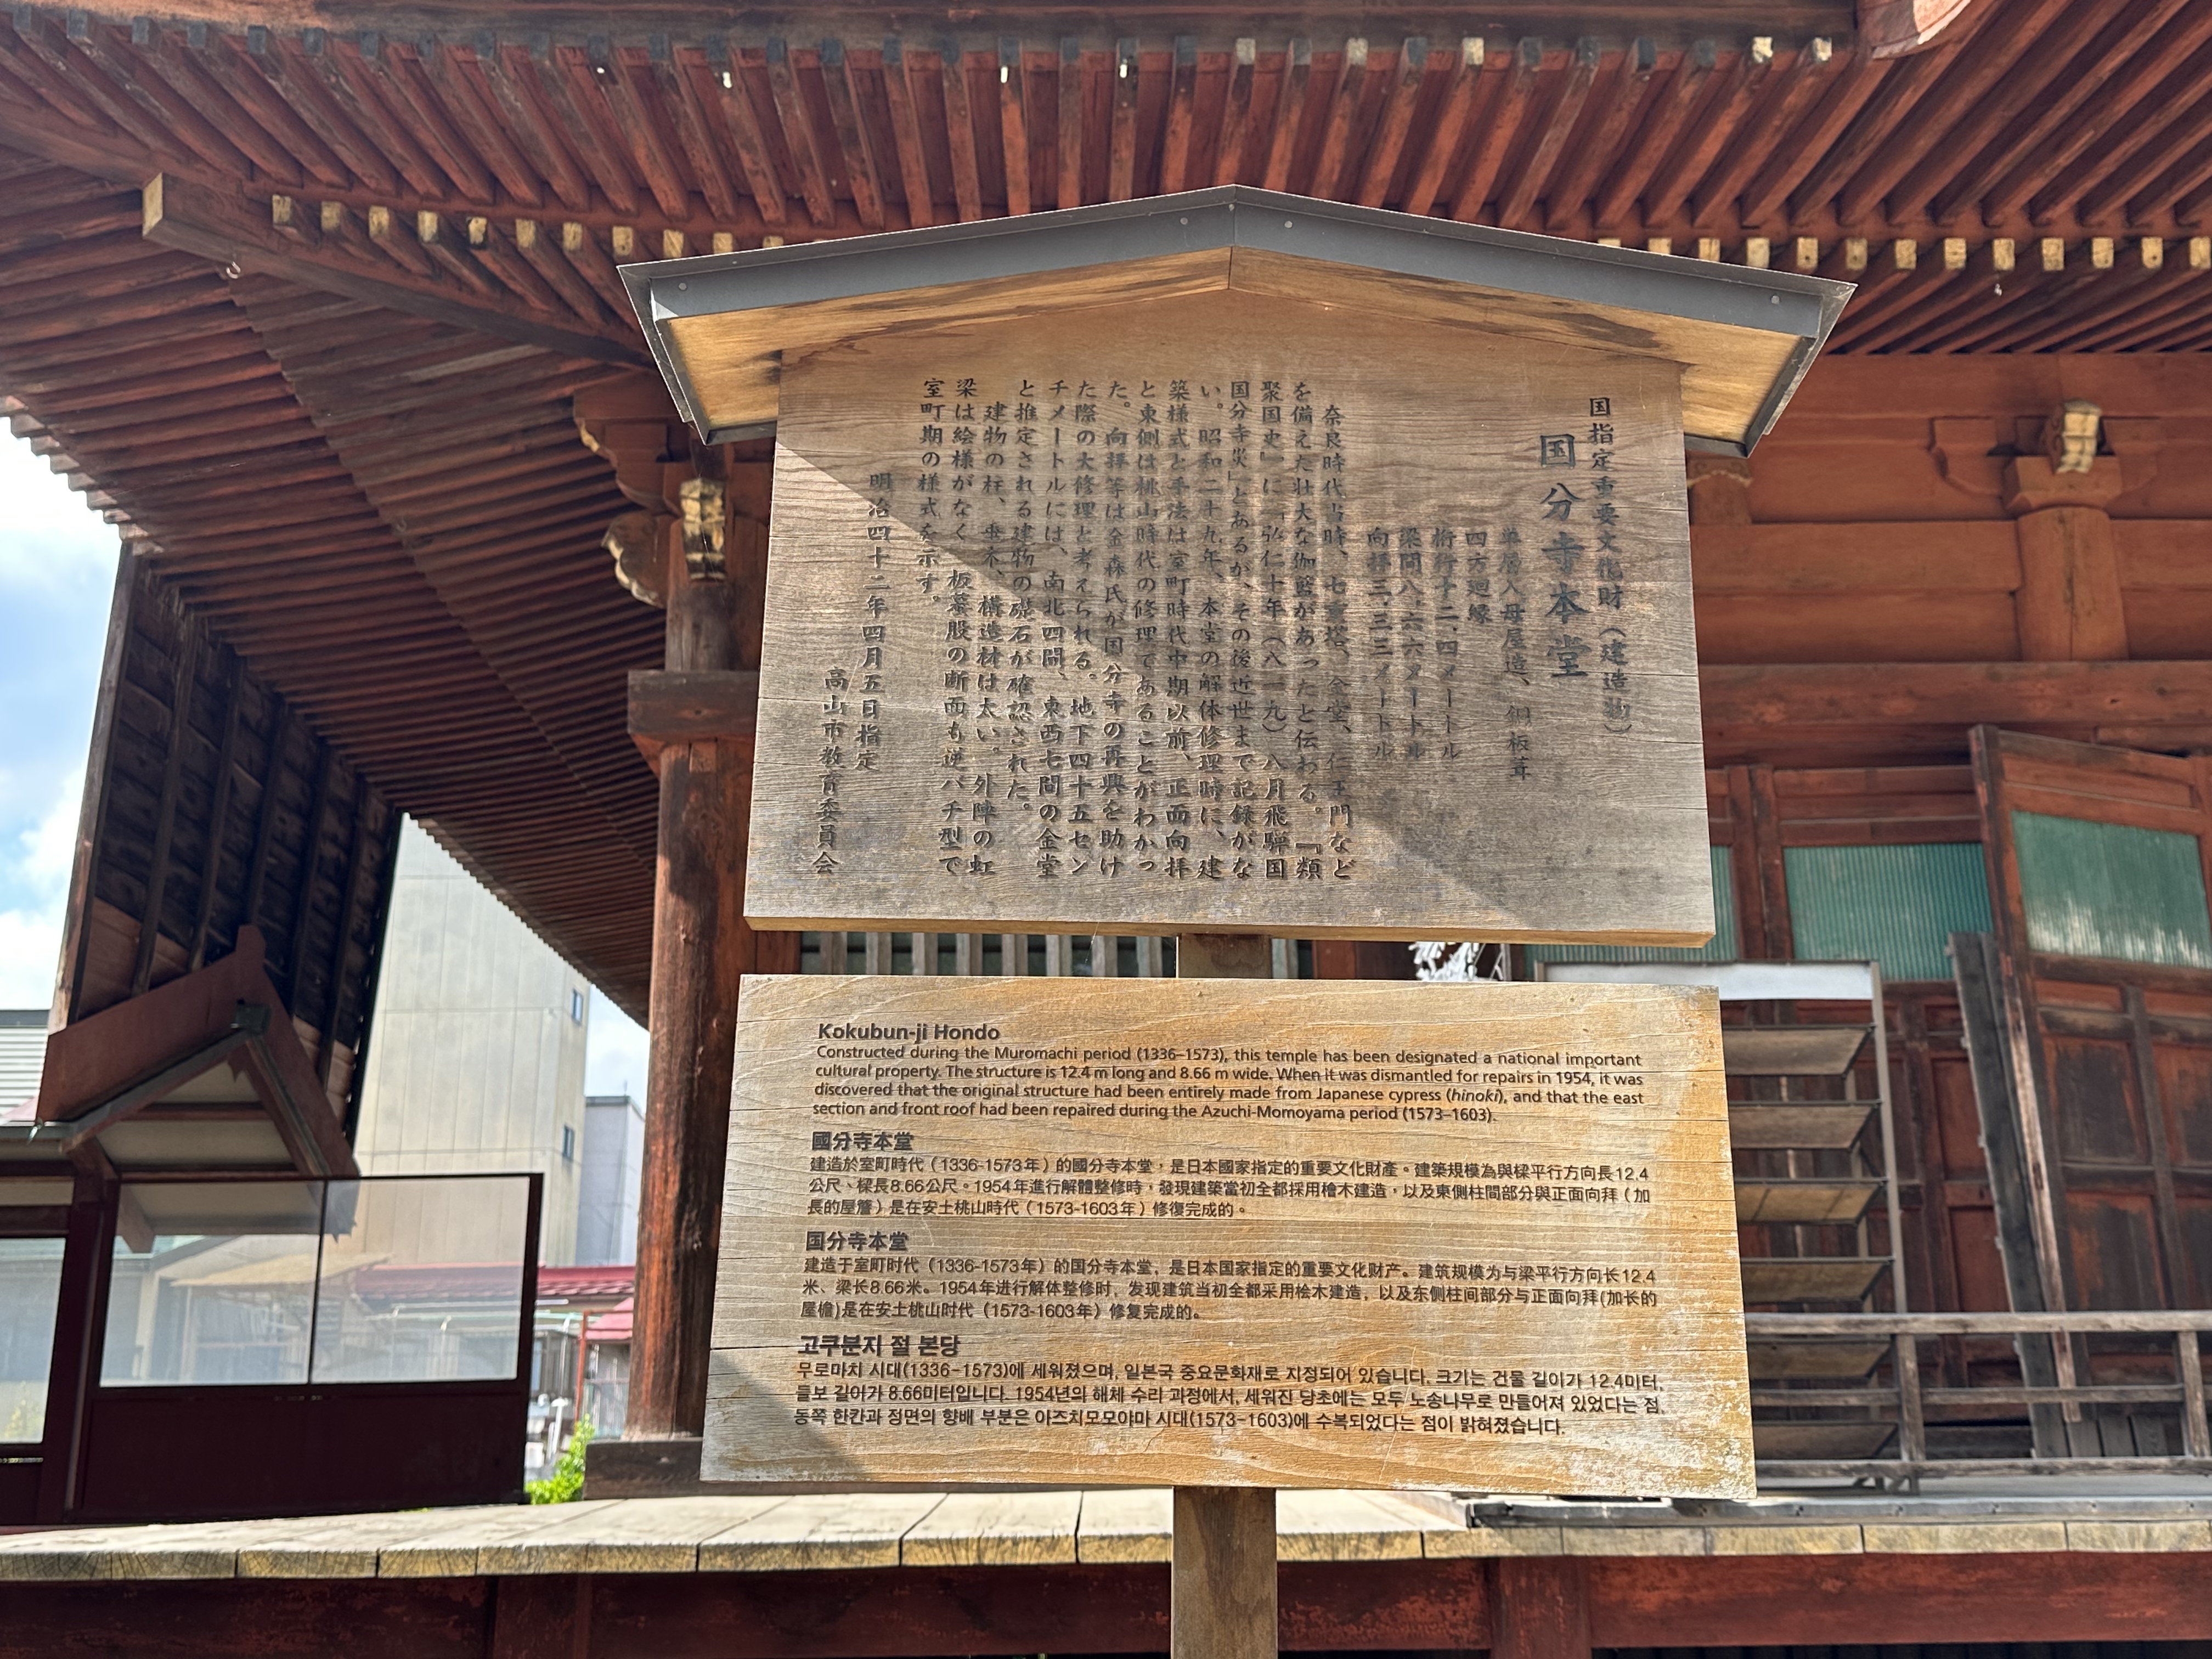 国指定重要文化財（建造物）
国分寺本堂
単層入母屋造、銅板葺
四方廻縁
桁行十二.四メートル
梁間八.六六メートル
向拝三.三三メートル
奈良時代当時、七重塔、金堂、仁王門など
を備えた壮大な伽藍があったと伝わる。『類
聚国史』に「弘仁十年（八一九）八月飛騨国
国分寺災」とあるが、その後近世まで記録がな
い。昭和二十九年、本堂の解体修理時に、建
築様式と手法は室町時代中期以前、正面向拝
と東側は桃山時代の修理であることがわかっ
た。向拝等は金森氏が国分寺の再興を助け
た際の大修理と考えられる。地下四十五セン
チメートルには、南北四間、東西七間の金堂
と推定される建物の礎石が確認された。
建物の柱、垂木、構造材は太い。外陣の虹
梁は絵様がなく、板蟇股の断面も逆バチ型で
室町期の様式を示す。
明治四十二年四月五日指定
高山市教育委員会
Kokubun-ji Hondo
Constructed during the Muromachi period (1336–1573), this temple has been designated a national important
cultural property. The structure is 12.4 m long and 8.66 m wide. When it was dismantled for repairs in 1954, it was
discovered that the original structure had been entirely made from Japanese cypress (hinoki), and that the east
section and front roof had been repaired during the Azuchi-Momoyama period (1573–1603).
國分寺本堂
建造於室町時代（1336-1573年）的國分寺本堂，是日本國家指定的重要文化財產。建築規模為與樑平行方向長12.4
公尺、樑長8.66公尺。1954年進行解體整修時，發現建築當初全都採用檜木建造，以及東側柱間部分與正面向拜（加
長的屋簷）是在安土桃山時代（1573-1603年）修復完成的。
国分寺本堂
建造于室町时代（1336-1573年）的国分寺本堂，是日本国家指定的重要文化财产。建筑规模为与梁平行方向长12.4
米、梁长8.66米。1954年进行解体整修时，发现建筑当初全都采用桧木建造，以及东侧柱间部分与正面向拜(加长的
屋檐)是在安土桃山时代（1573-1603年）修复完成的。
고쿠분지 절 본당
무로마치 시대(1336-1573)에 세워졌으며, 일본국 중요문화재로 지정되어 있습니다. 크기는 건물 길이가 12.4미터,
들보 길이가 8.66미터입니다. 1954년의 해체 수리 과정에서, 세워진 당초에는 모두 노송나무로 만들어져 있었다는 점,
동쪽 한칸과 정면의 향배 부분은 아즈치모모야마 시대(1573-1603)에 수복되었다는 점이 밝혀졌습니다.